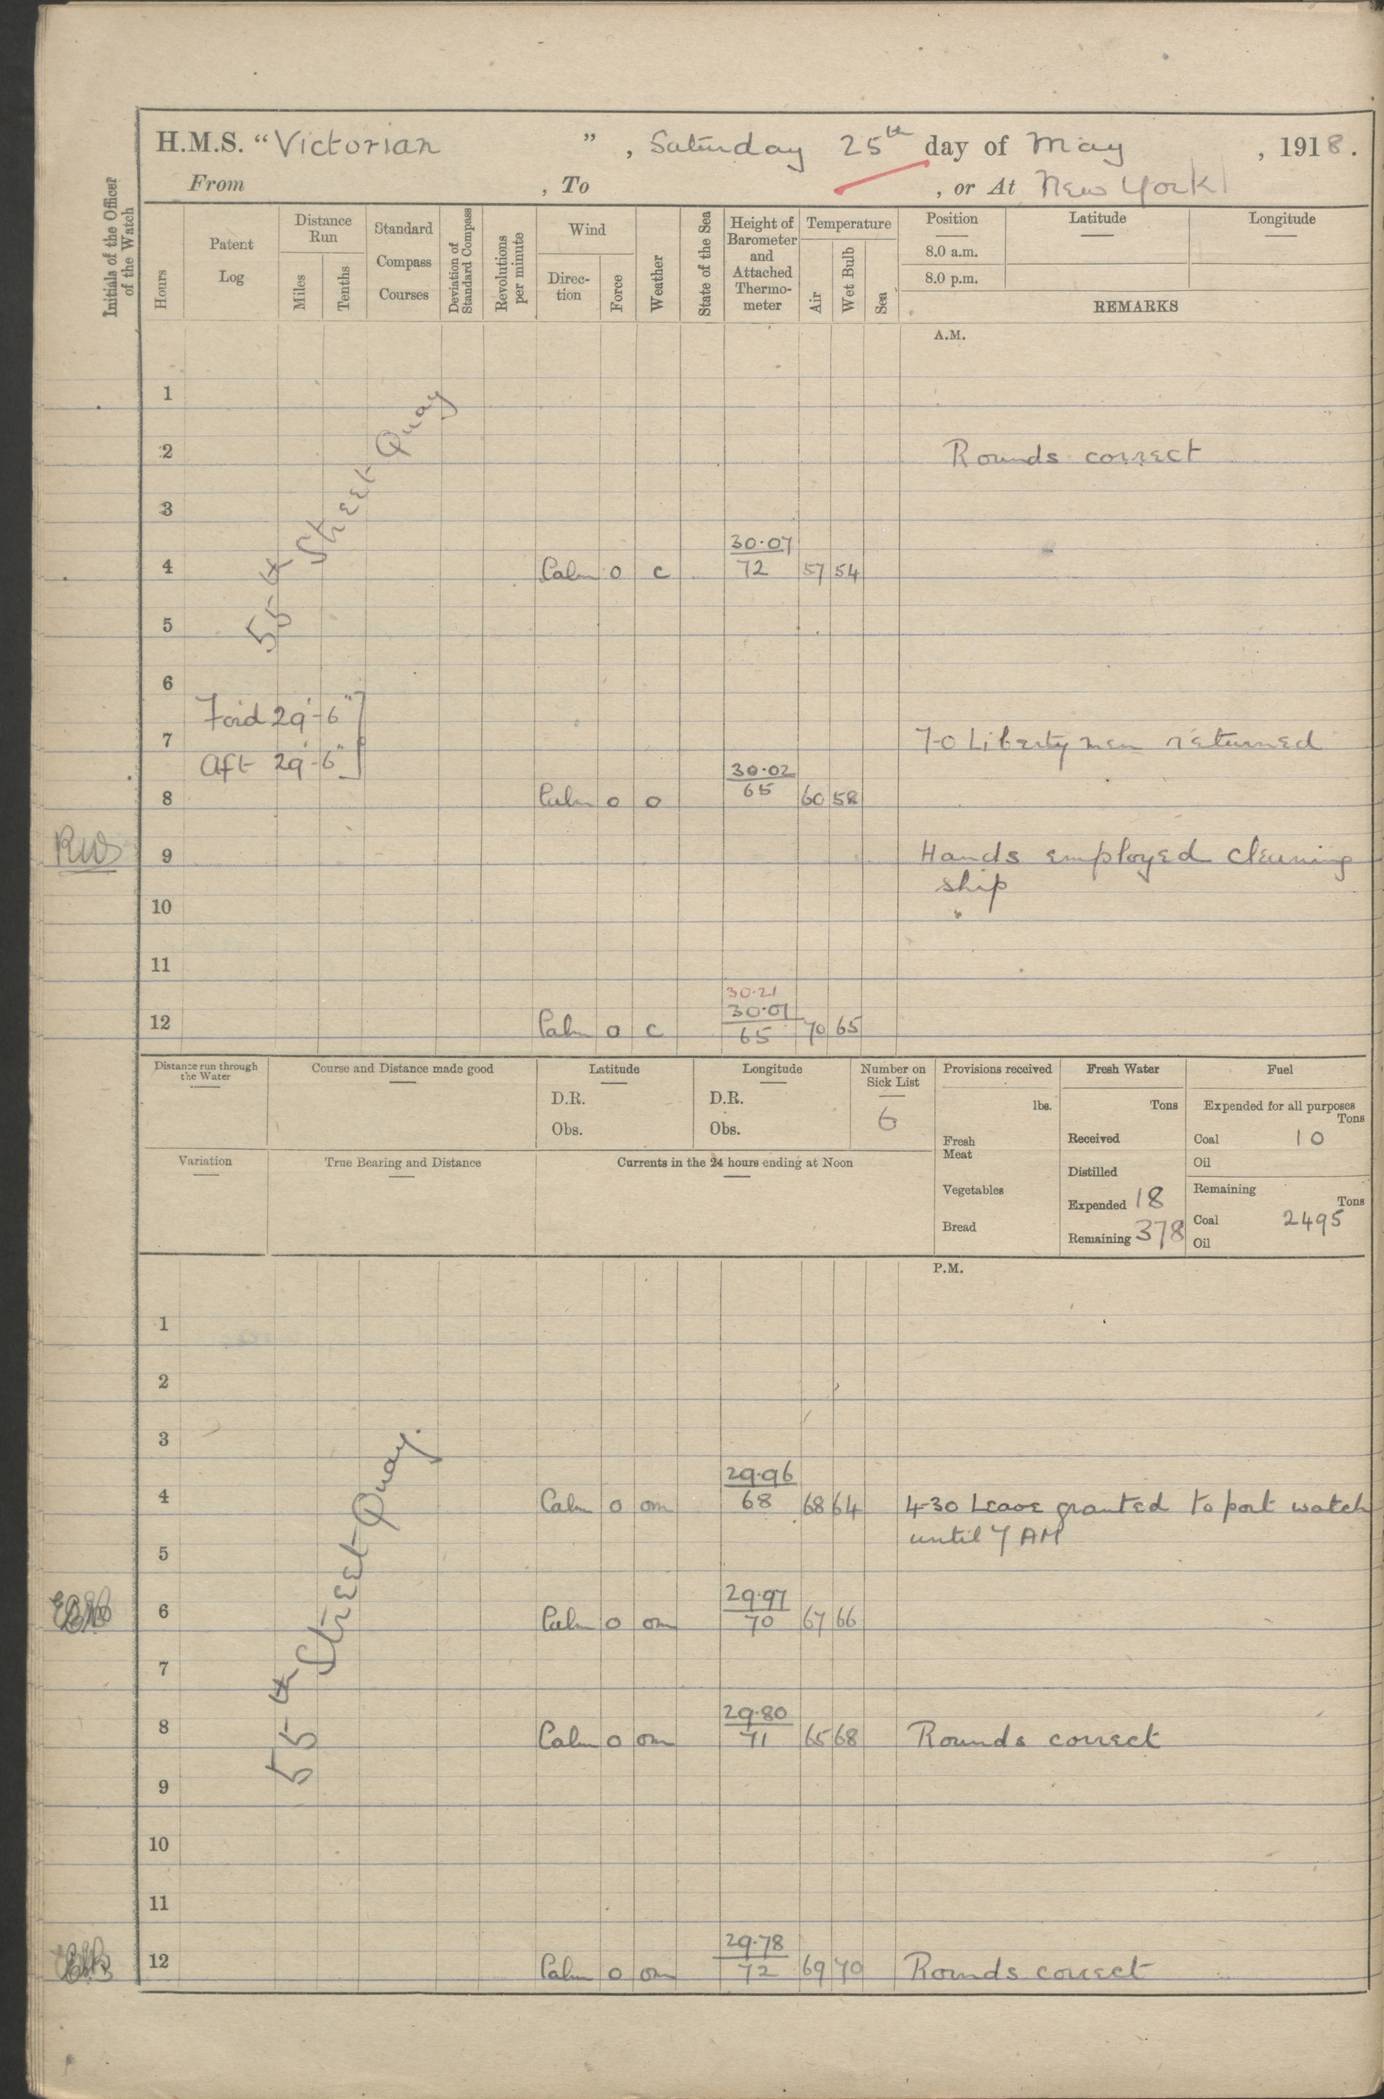 H.M.S. “Victorian ”, Saturday 25th day of May, 1918.
From , To , or At New York
Initials of the Officer of the Watch
Hours
Patent Log
Distance Run
Miles
Tenths
Standard Compass Courses
Deviation of Standard Compass
Revolutions per minute
Wind
Direc-tion
Force
Weather
State of the Sea
Height of Barometer and Attached Thermo-meter
Temperature
Air
Wet Bulb
Sea
Position
Latitude
Longitude
8.0 a.m.
8.0 p.m.
REMARKS
A.M.
55th Street Quay
1
2 Rounds correct
3
30·07
4 Calm 0 c 72 57 54
5
6
For'd 29'-6"
7 7-0 Liberty men returned
Aft 29'-6"
30·02
8 Calm 0 o 65 60 58
RWS 9 Hands employed cleaning
ship
10
11
30·21
30·01
12 Calm 0 c 65 70 65
Distance run through the Water
Course and Distance made good
Latitude
D.R.
Obs.
Longitude
D.R.
Obs.
Number on Sick List
6
Provisions received
lbs.
Fresh Meat
Vegetables
Bread
Fresh Water
Tons
Received
Distilled
Expended 18
Remaining 378
Fuel
Expended for all purposes
Tons
Coal 10
Oil
Remaining
Tons
Coal 2495
Oil
Variation
True Bearing and Distance
Currents in the 24 hours ending at Noon
P.M.
55th Street Quay.
1
2
3
29·96
4 Calm 0 om 68 68 64 4-30 Leave granted to port watch
until 7 AM
5
29·97
6 Calm 0 om 70 67 66
7
29·80
8 Calm 0 om 71 65 68 Rounds correct
9
10
11
29·78
12 Calm 0 om 72 69 70 Rounds correct